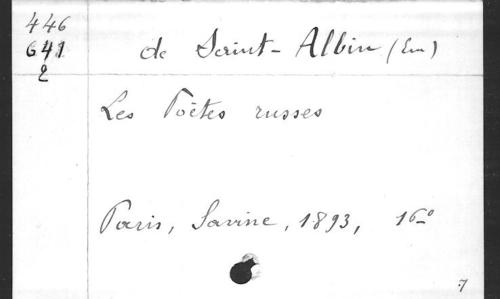 446
641
2
de Saint-Albin (Em)
Les Poètes russes
Paris, Savine, 1893, 16º
7